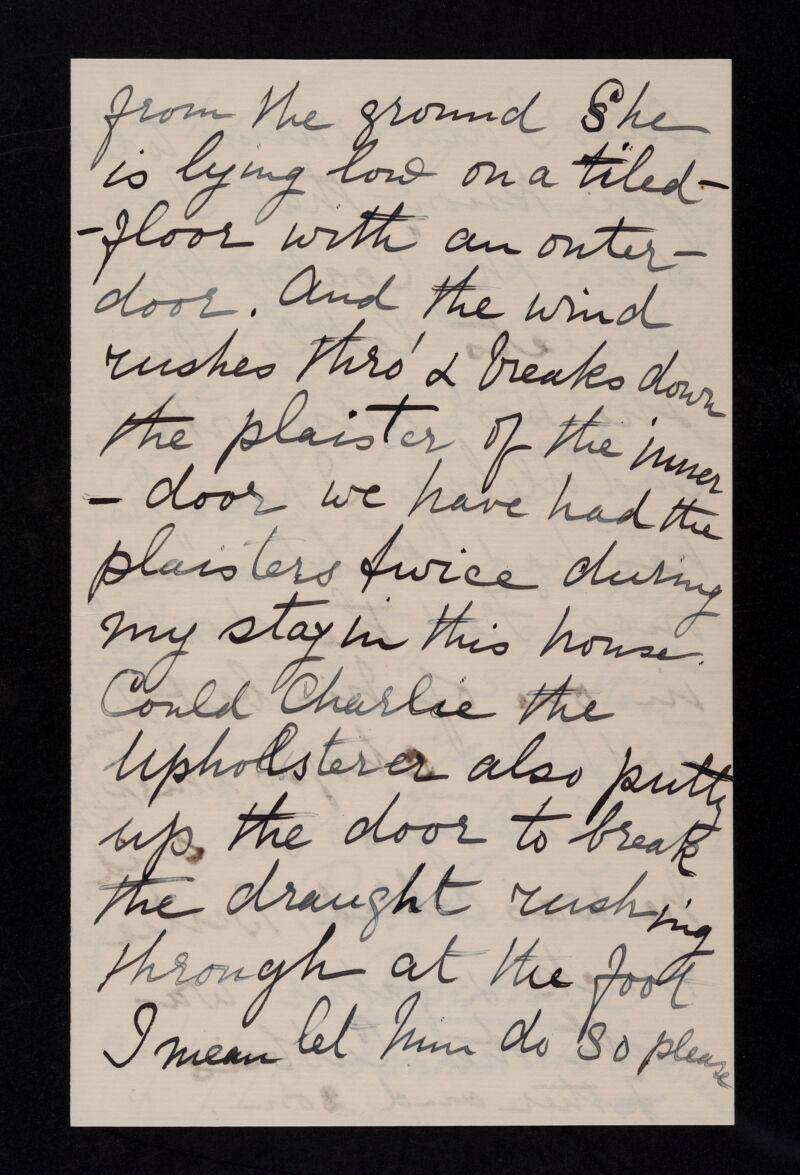 from the ground She
is lying low on a tiled-
-floor with an outer-
door. And the wind
rushes thro' & breaks down
the plaister of the inner
- door we have had the
plaisters twice during
my stay in this house.
Could Charlie the
upholsterer also putty
up the door to break
the draught rushing
through at the foot
I mean let him do so please